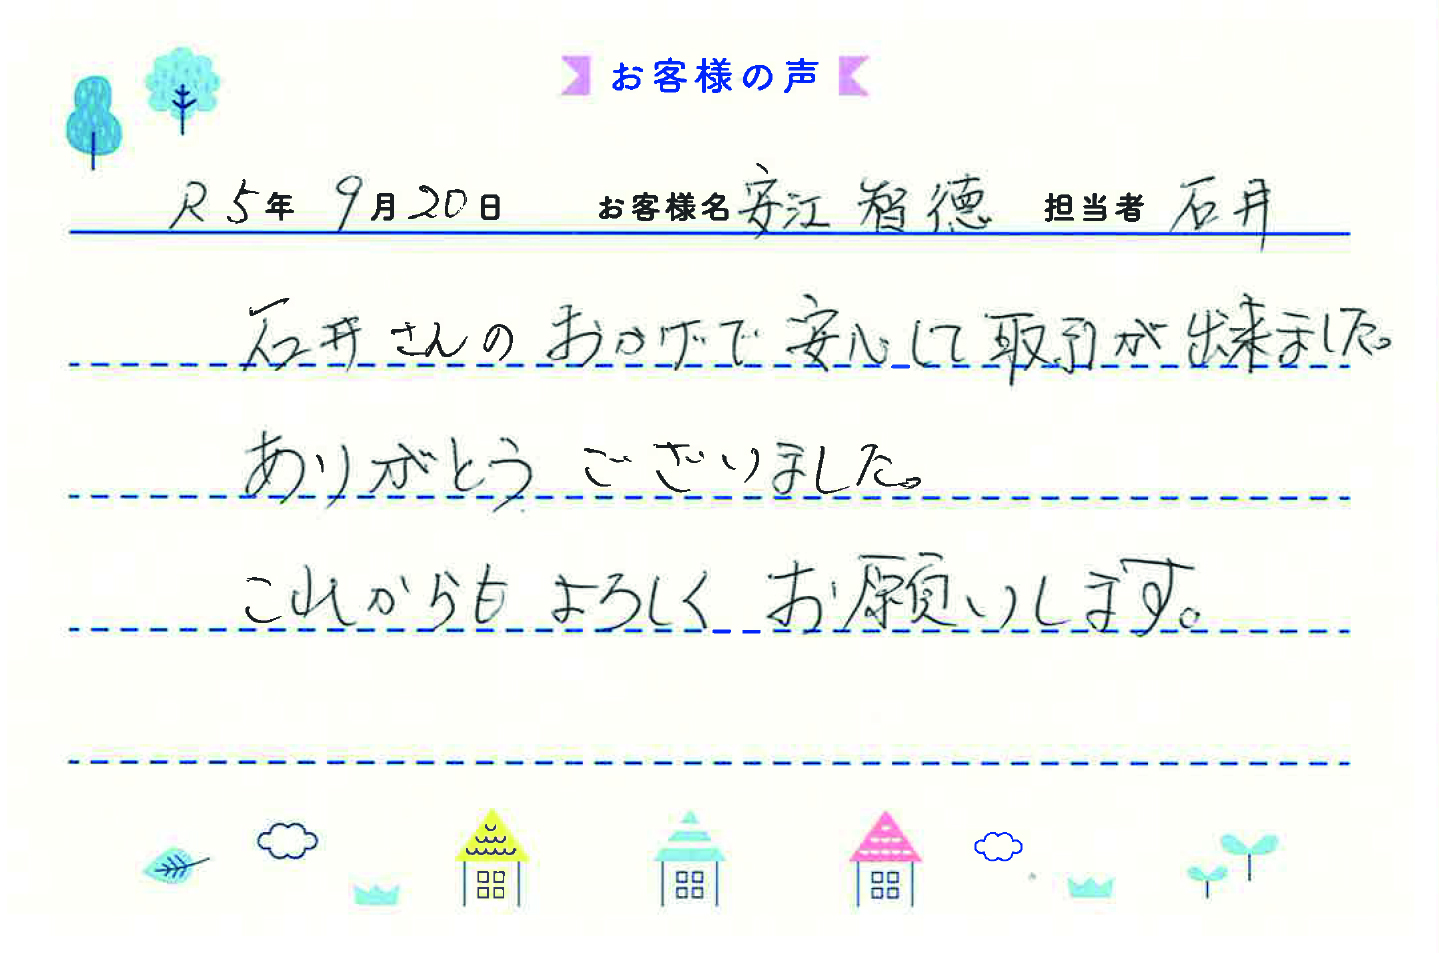 お客様の声
R5年 9月20日 お客様名 安江 智徳 担当者 石井
石井さんの おかげで 安心して 取引が 出来ました。
ありがとう ございました。
これからも よろしく お願いします。